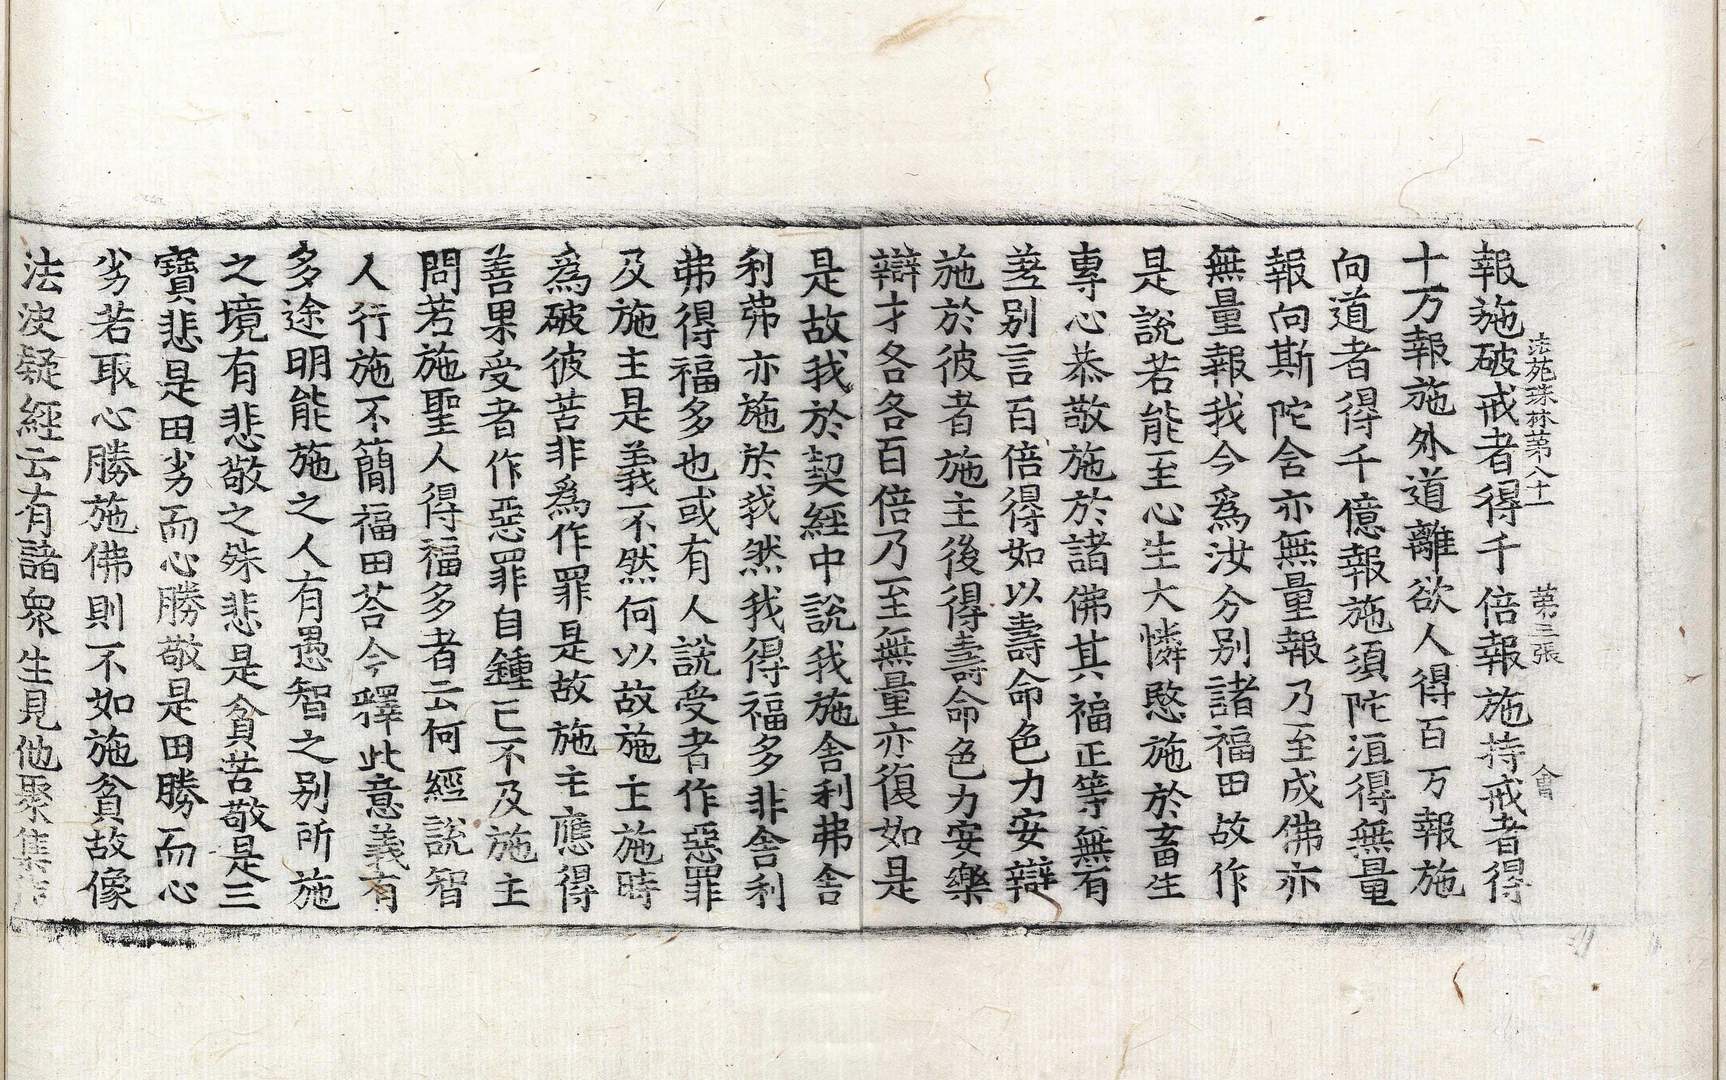 法苑珠林第八十一 第三張 會
報施破戒者得千倍報施持戒者得
十万報施外道離欲人得百万報施
向道者得千億報施須陀洹得無量
報向斯陀含亦無量報乃至成佛亦
無量報我今為汝分別諸福田故作
是說若能至心生大憐愍施於畜生
專心恭敬施於諸佛其福正等無有
差別言百倍得如以壽命色力安辯
施於彼者施主後得壽命色力安樂
辯才各各百倍乃至無量亦復如是
是故我於契經中說我施舍利弗舍
利弗亦施於我然我得福多非舍利
弗得福多也或有人說受者作惡罪
及施主是義不然何以故施主施時
為破彼苦非為作罪是故施主應得
善果受者作惡罪自鍾己不及施主
問若施聖人得福多者云何經說智
人行施不簡福田荅今釋此意義有
多途明能施之人有愚智之別所施
之境有悲敬之殊悲是貧苦敬是三
寶悲是田劣而心勝敬是田勝而心
劣若取心勝施佛則不如施貧故像
法決疑經云有諸衆生見他聚集作